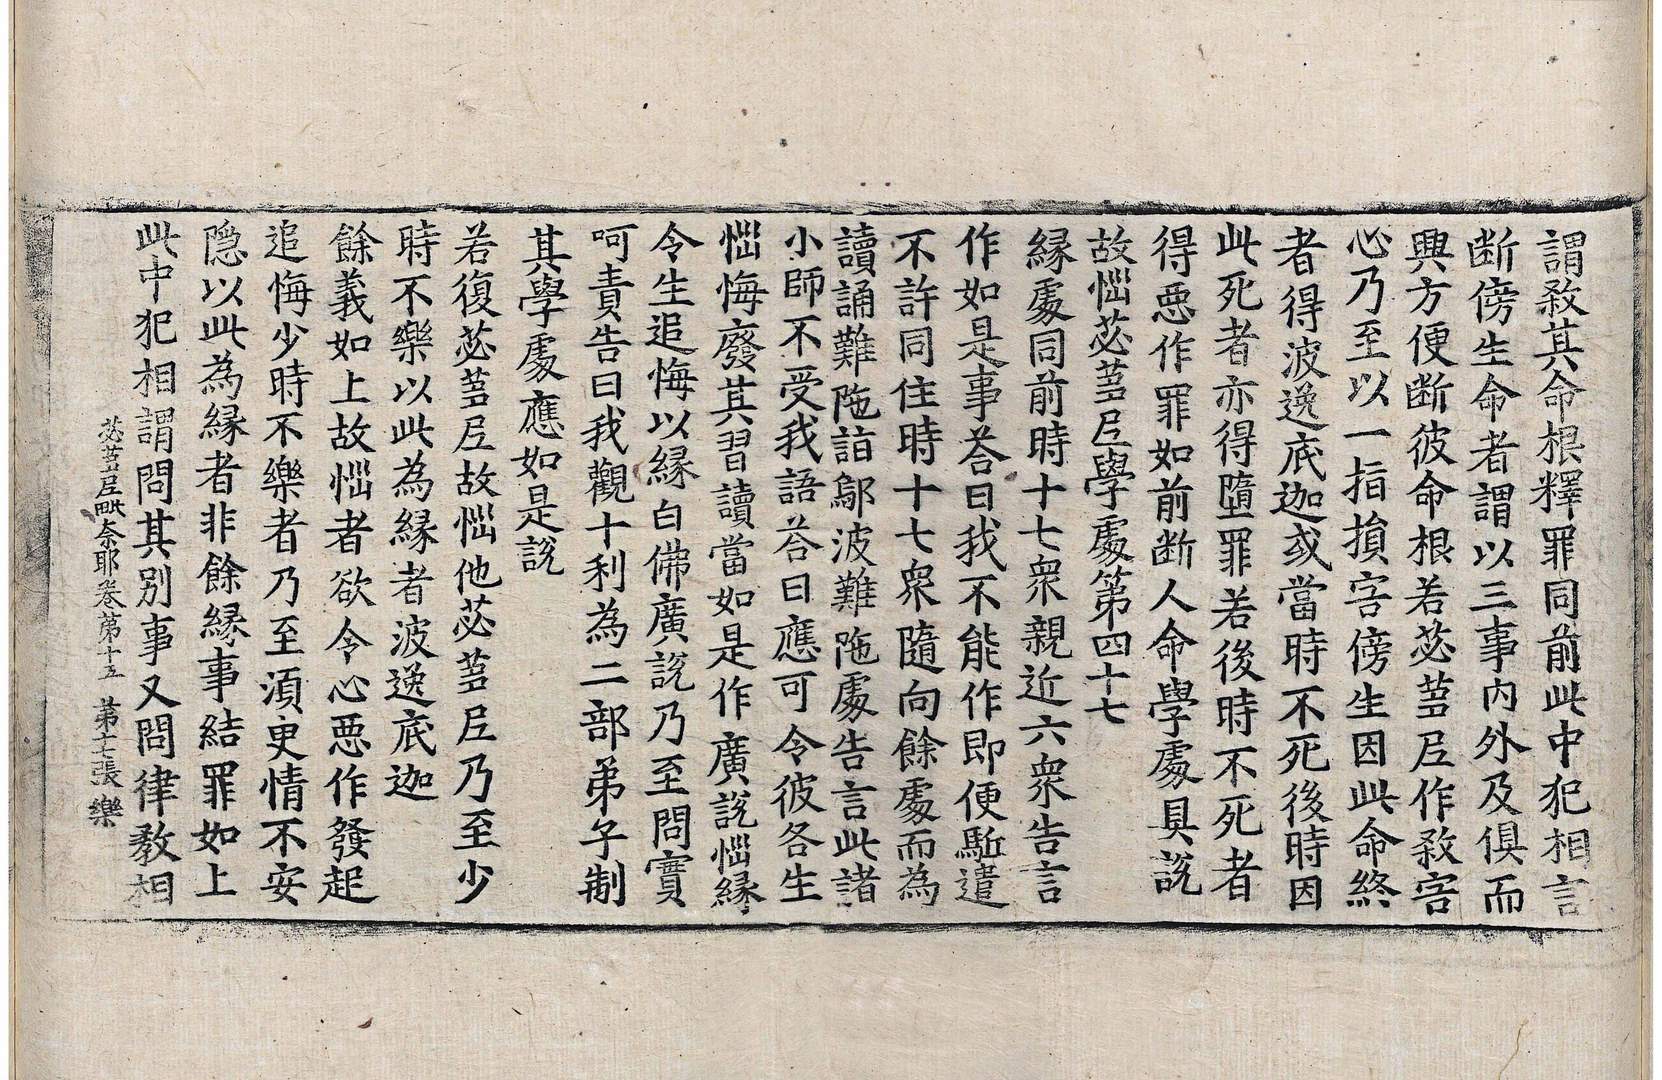 謂殺其命根釋罪同前此中犯相言
断傍生命者謂以三事內外及俱而
興方便断彼命根若苾蒭尼作殺害
心乃至以一指損害傍生因此命終
者得波逸底迦或當時不死後時因
此死者亦得墮罪若後時不死者
得惡作罪如前断人命學處具說
故惱苾蒭尼學處第四十七
緣處同前時十七衆親近六衆告言
作如是事荅曰我不能作即便駈遣
不許同住時十七衆隨向餘處而為
讀誦難陁詣鄔波難陁處告言此諸
小師不受我語荅曰應可令彼各生
惱悔廢其習讀當如是作廣說惱緣
令生追悔以緣白佛廣說乃至問實
呵責告曰我觀十利為二部弟子制
其學處應如是說
若復苾蒭尼故惱他苾蒭尼乃至少
時不樂以此為緣者波逸底迦
餘義如上故惱者欲令心惡作發起
追悔少時不樂者乃至湏更情不安
隱以此為緣者非餘緣事結罪如上
此中犯相謂問其別事又問律教相
苾蒭尼毗奈耶卷第十五 第十七張 樂